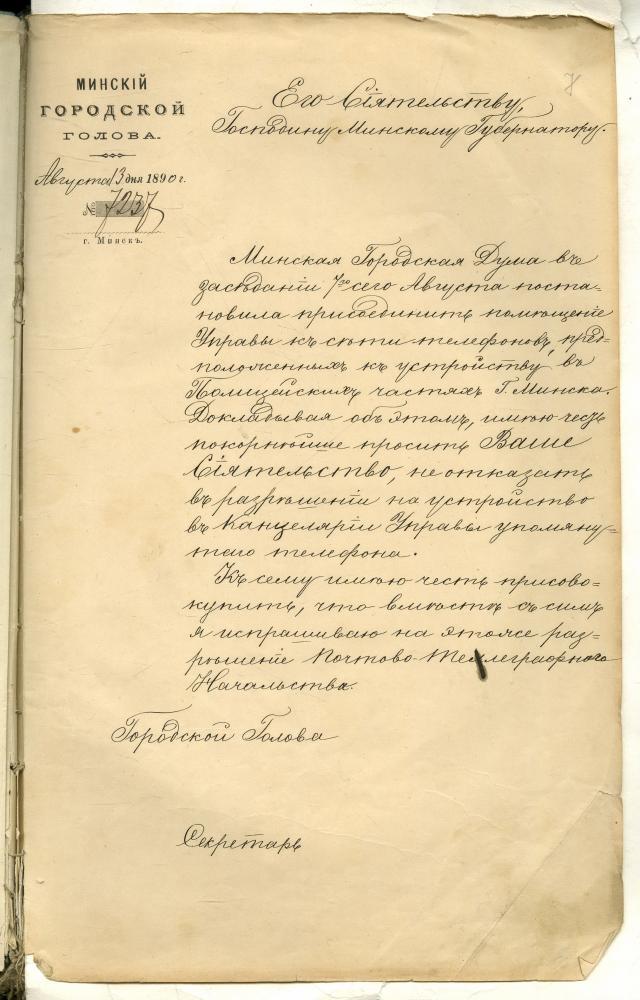 МИНСКІЙ
ГОРОДСКОЙ
ГОЛОВА.
Августа 13 дня 1890 г.
№ 7237
г. Минскъ.
7
Его Сіятельству,
Господину Минскому Губернатору.
Минская Городская Дума въ
засѣданіи 7го сего Августа поста-
новила присоединить помѣщеніе
Управы къ сѣти телефоновъ, пред-
положенныхъ къ устройству въ
Полицейскихъ частяхъ Г. Минска.
Докладывая объ этомъ, имѣю честь
покорнѣйше просить Ваше
Сіятельство, не отказать
въ разрѣшеніи на устройство
въ Канцеляріи Управы упомяну-
таго телефона.
Къ сему имѣю честь присово-
купить, что вмѣстѣ съ симъ
я испрашиваю на этоже раз-
рѣшеніе Почтово-Телеграфнаго
Начальства.
Городской Голова
Секретарь